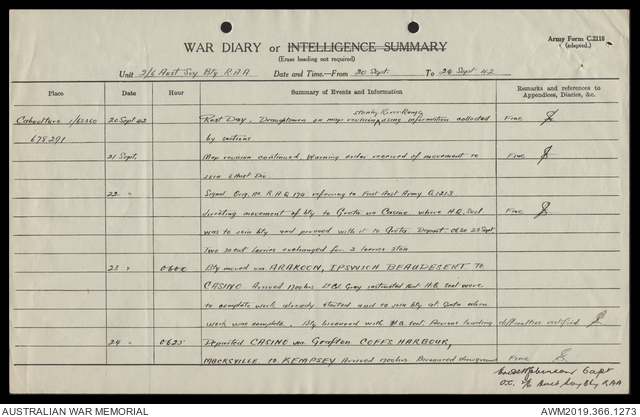 Army Form C.2118
(adapted.)
WAR DIARY or INTELLIGENCE SUMMARY
(Erase heading not required)
Unit 2/6 Aust Svy Bty RAA Date and Time—From 20 Sept. To 24 Sept 42
Place Date Hour Summary of Events and Information Remarks and references to Appendices, Diaries, &c.
Stanley River Range
Caboolture 1/63360 20 Sept. 42 Rest Day. Draughtsmen on map revision, using information collected Fine
678291 by sections
21 Sept. Map revision continued. Warning order received of movement to Fine
join Aust Div.
22 " Signal Orig. No. R.A.Q 194 referring to First Aust Army G.1213
directing movement of bty to Greta via Casino where H.Q. Sect Fine
was to join bty and proceed with it to Greta. Depart 0630 23 Sept.
Two 30 cwt lorries exchanged for 2 lorries 3 ton
23 " 0600 Bty moved via ARAKOON, IPSWICH BEAUDESERT to
CASINO Arrived 1700 hrs Lt Col. Gray instructed that H.Q. Sect were
to complete work already started and to join bty at Greta when
work was complete. Bty bivouaced with HQ Sect. Previous loading difficulties rectified.
24 " 0625 Departed CASINO via Grafton COFFS HARBOUR,
MACKSVILLE to KEMPSEY Arrived 1700 hrs Bivouaced showground Fine
Capt
O.C. 2/6 Aust Svy Bty RAA
AUSTRALIAN WAR MEMORIAL AWM2019.366.1273